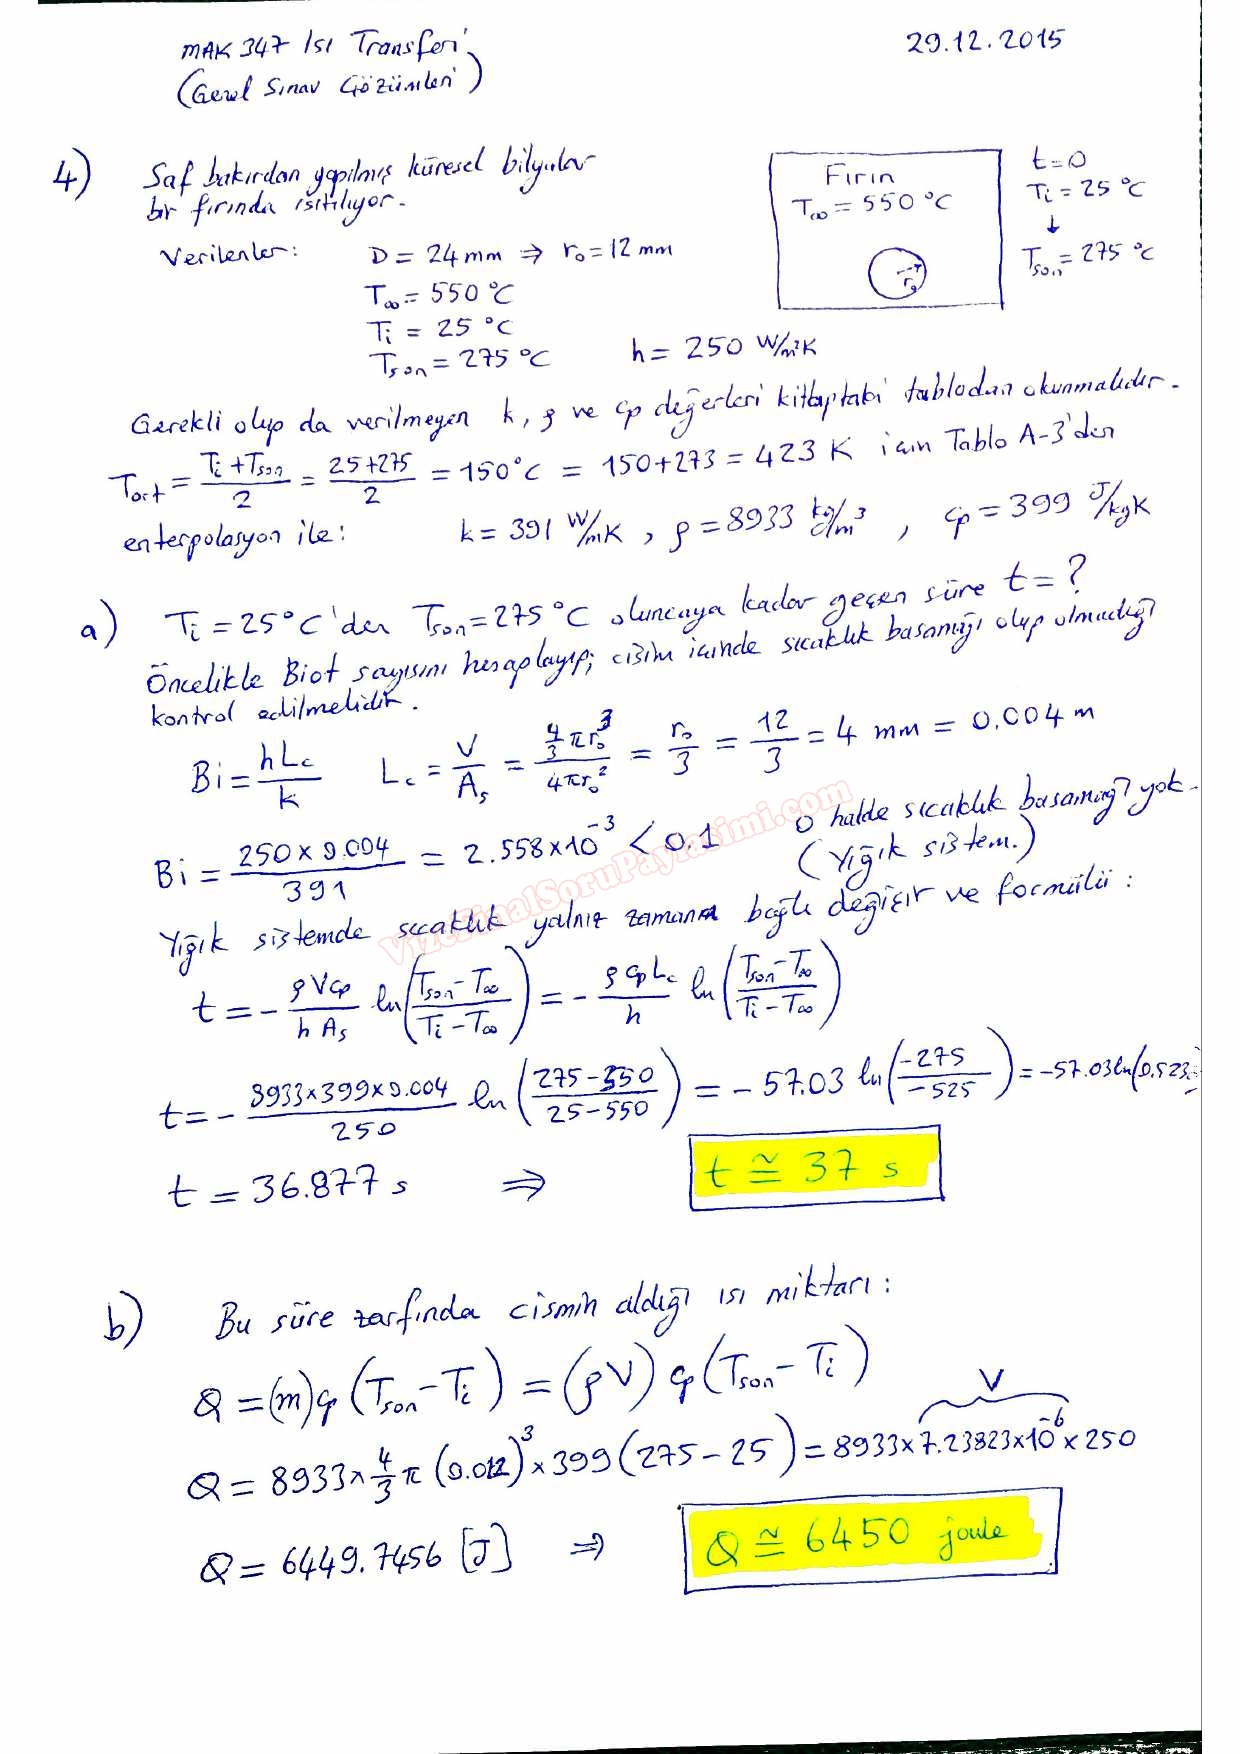 MAK 347 Isı Transferi
29.12.2015
(Genel Sınav Çözümleri)
4) Saf bakırdan yapılmış küresel bilyalar
bir fırında ısıtılıyor.
Fırın
T∞ = 550 °C
r₀
t=0
Ti = 25 °C
↓
Tson = 275 °C
Verilenler: D = 24 mm ⇒ r₀ = 12 mm
T∞ = 550 °C
Ti = 25 °C
Tson = 275 °C h = 250 W/m²K
Gerekli olup da verilmeyen k, ρ ve cp değerleri kitaptaki tablodan okunmalıdır.
Tort = (Ti + Tson)/2 = (25+275)/2 = 150°C = 150+273 = 423 K için Tablo A-3'den
enterpolasyon ile: k = 391 W/mK , ρ = 8933 kg/m³ , cp = 399 J/kgK
a) Ti = 25°C'den Tson = 275°C oluncaya kadar geçen süre t = ?
Öncelikle Biot sayısını hesaplayıp; cisim içinde sıcaklık basamağı olup olmadığı
kontrol edilmelidir.
Bi = hLc/k Lc = V/As = (4/3 πr₀³)/(4πr₀²) = r₀/3 = 12/3 = 4 mm = 0.004 m
Bi = (250 x 0.004)/391 = 2.558x10⁻³ < 0.1 O halde sıcaklık basamağı yok.
(Yığık sistem.)
Yığık sistemde sıcaklık yalnız zamana bağlı değişir ve formülü :
t = - (ρVcp)/(hAs) ln((Tson - T∞)/(Ti - T∞)) = - (ρ cp Lc)/h ln((Tson - T∞)/(Ti - T∞))
t = - (8933x399x0.004)/250 ln((275-550)/(25-550)) = -57.03 ln(-275/-525) = -57.03ln(0.523
t = 36.877 s ⇒ t ≅ 37 s
b) Bu süre zarfında cismin aldığı ısı miktarı :
Q = (m)cp (Tson - Ti) = (ρV) cp (Tson - Ti)
V
Q = 8933 x 4/3 π (0.012)³ x 399 (275 - 25) = 8933 x 7.23823x10⁻⁶ x 250
Q = 6449.7456 [J] ⇒ Q ≅ 6450 joule
VizeFinalSoruPaylasimi.com